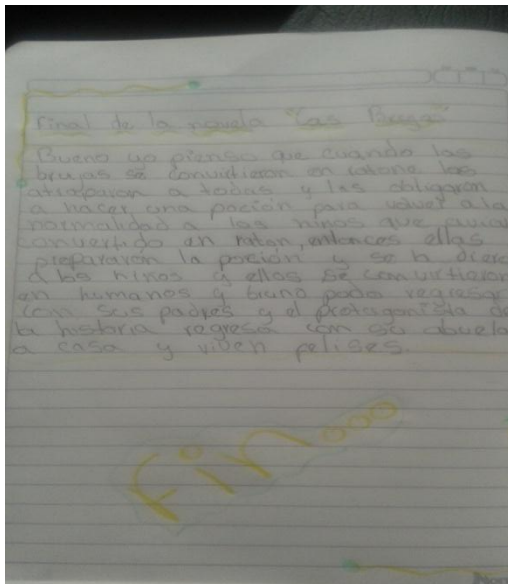 Final de la novela "Las Brujas"
Bueno yo pienso que cuando las
brujas se convirtieron en ratone las
atraparon a todas y las obligaron
a hacer una poción para volver a la
normalidad a los niños que avian
convertido en raton, entonces ellas
prepararon la poción y se la dieron
a los niños y ellos se convirtieron
en humanos y bruno pudo regresar
com sus padres y el protagonista de
la historia regresa com su abuela
a casa y viven felises.
Fin...